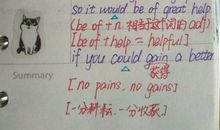 so it would be of great help
(be of + n. 相当于这个词的adj)
[be of + help = helpful]
if you could gain a better
获得
Summary
[no pains, no gains]
[一分耕耘,一分收获]